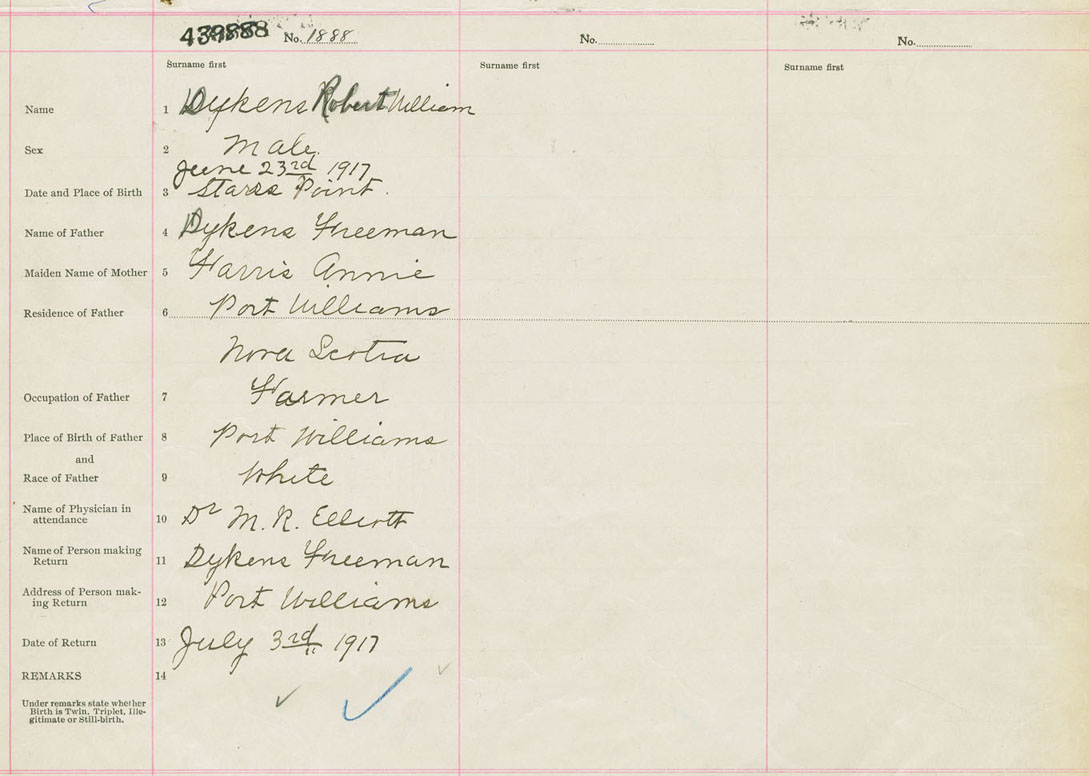 No. 1888 No. No.
Surname first Surname first Surname first
Name 1 Dykens Robert William
Sex 2 Male
June 23rd 1917
Date and Place of Birth 3 Starrs Point.
Name of Father 4 Dykens Freeman
Maiden Name of Mother 5 Harris Annie
Residence of Father 6 Port Williams
Nova Scotia
Occupation of Father 7 Farmer
Place of Birth of Father 8 Port Williams
and
Race of Father 9 White
Name of Physician in
attendance 10 Dr M. R. Elliott
Name of Person making
Return 11 Dykens Freeman
Address of Person mak-
ing Return 12 Port Williams
Date of Return 13 July 3rd 1917
REMARKS 14
Under remarks state whether
Birth is Twin, Triplet, Ille-
gitimate or Still-birth.